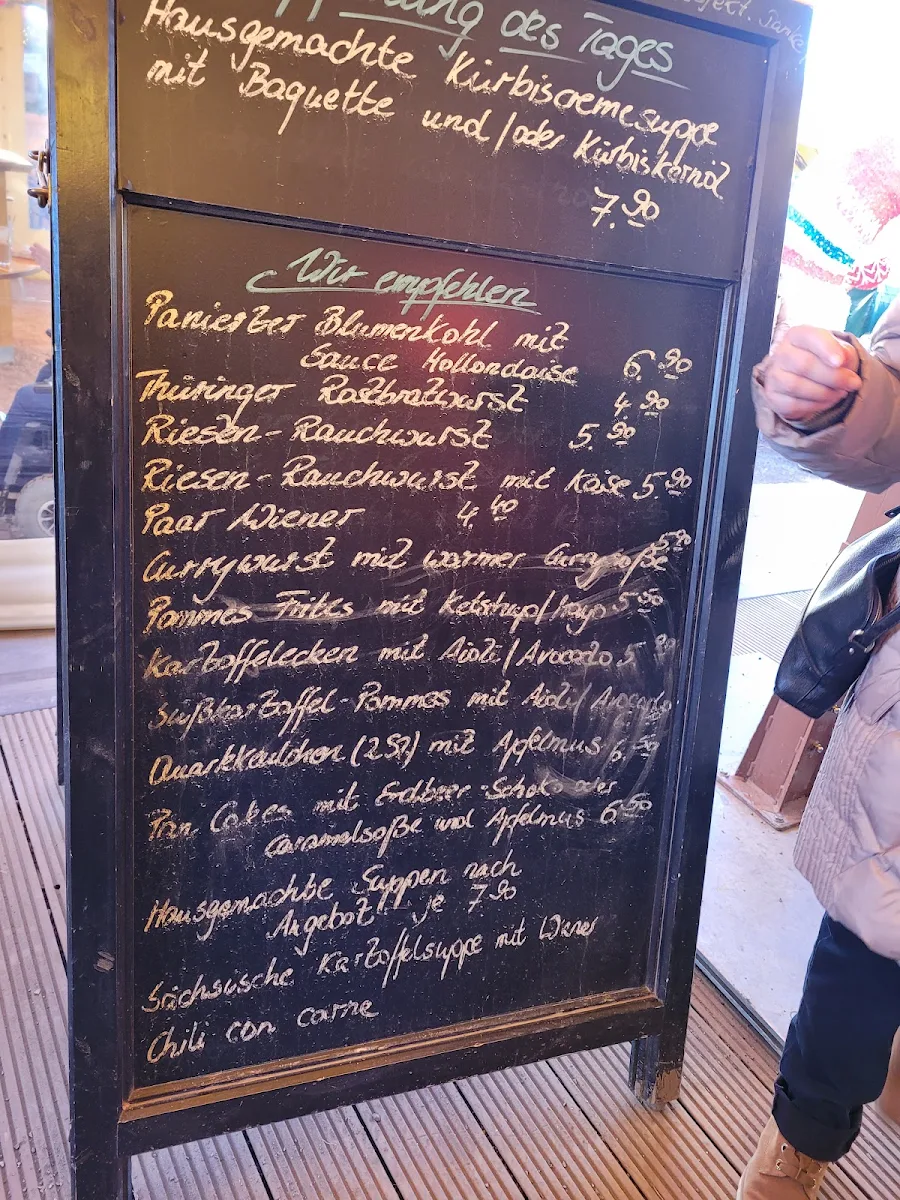 des Tages
Hausgemachte Kürbiscremesuppe
mit Baguette und/oder Kürbiskernöl
7.90
Wir empfehlen
Panierter Blumenkohl mit
Sauce Hollondaise 6.90
Thüringer Rostbratwurst 4.90
Riesen-Rauchwurst 5.90
Riesen-Rauchwurst mit Käse 5.90
Paar Wiener 4.40
Currywurst mit warmer Currysoße 5.90
Pommes Frites mit Ketchup/Mayo 5.50
Kartoffelecken mit Aioli/Avocado 5
Süßkartoffel-Pommes mit Aioli/Avocado
Quarkkeulchen (2 St) mit Apfelmus 6.50
Pan Cakes mit Erdbeer-Schoko oder
Caramelsoße und Apfelmus 6.50
Hausgemachte Suppen nach
Angebot je 7.90
Sächsische Kartoffelsuppe mit Wiener
Chili con carne